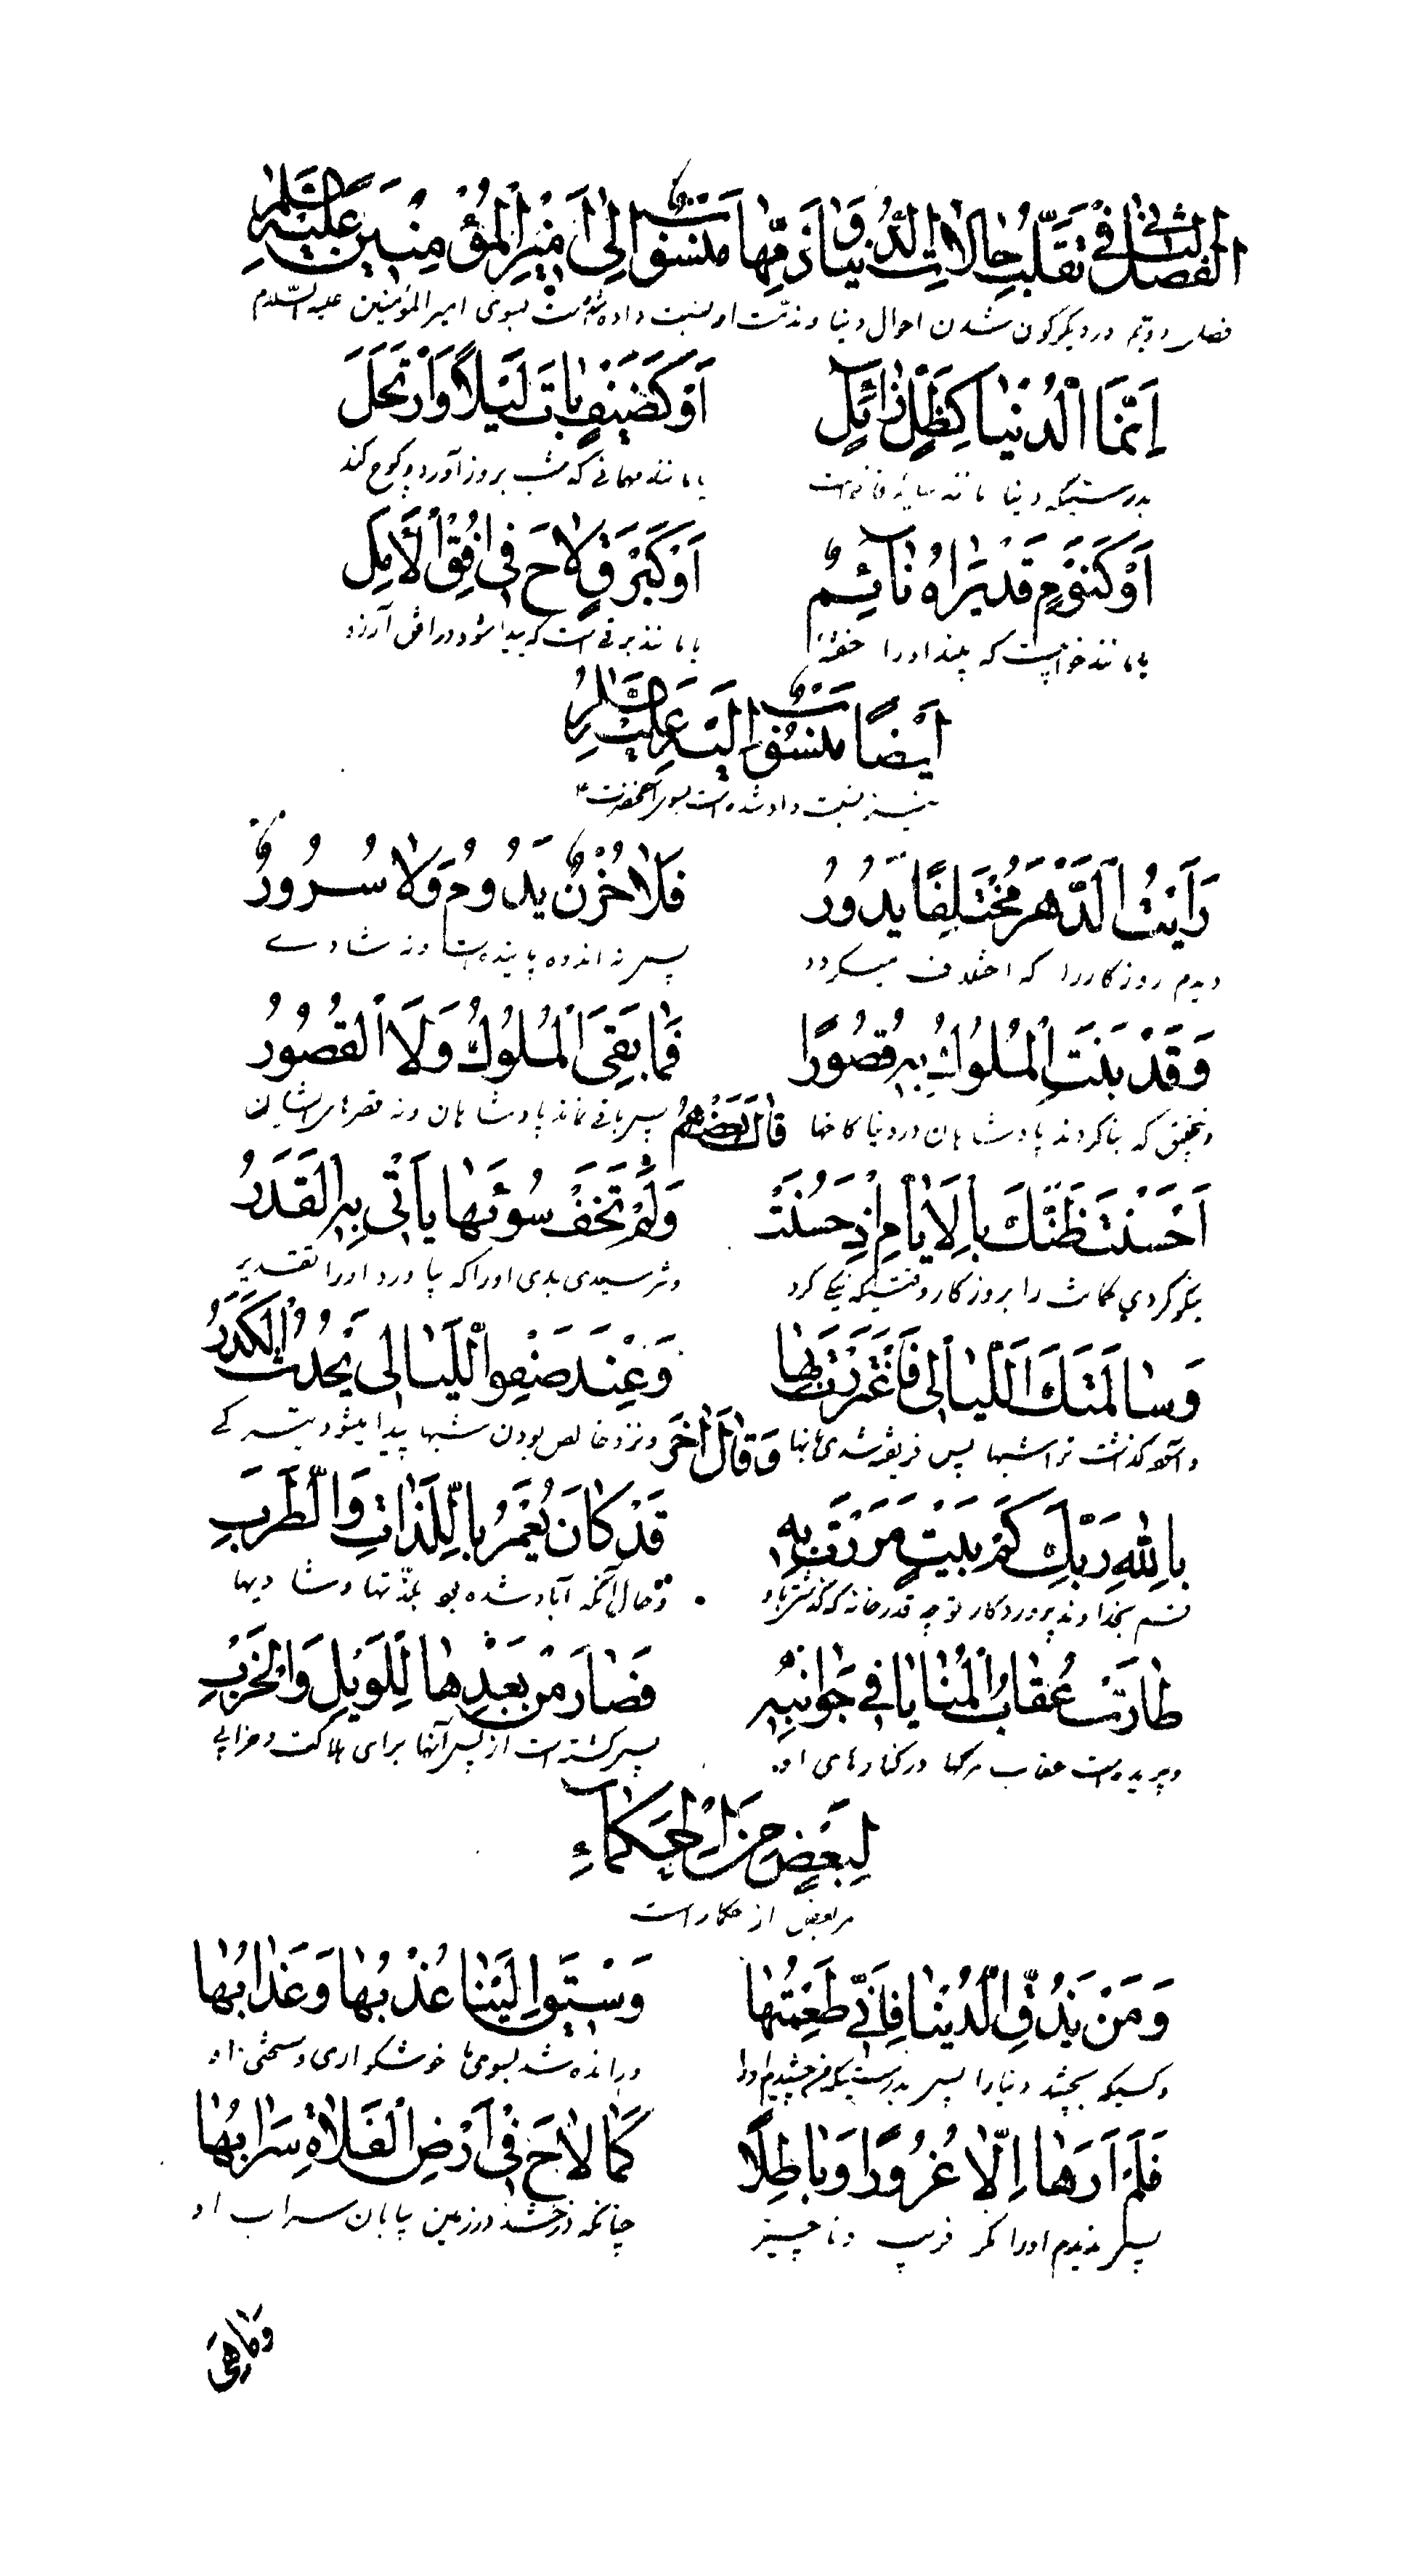 اَلْفَصْلُ الثّانی فی تَقَلُّبِ حالاتِ الدُّنْیا وَ ذَمِّها مَنْسُوبٌ اِلی اَمیرِ الْمُؤْمِنینَ عَلَیْهِ السَّلٰمُ
فصل دویم در دیگرگون شدن احوال دنیا و مذمت او نسبت داده شده است بسوی امیر المؤمنین علیه السلام
اِنَّمَا الدُّنْیا کَظِلٍّ زائِلٍ اَوْ کَضَیْفٍ باتَ لَیْلاً وَارْتَحَلَ
بدرستیکه دنیا مانند سایه فانی است یا مانند مهمانی که شب بروز آورد و کوچ کند
اَوْ کَنَوْمٍ قَدْ یَراهُ نائِمٌ اَوْ کَبَرْقٍ لاحَ فی اُفُقِ الْاَمَلِ
یا مانند خوابیست که بیند او را خفتهٔ یا مانند برقی است که پیدا شود در افق آرزو
اَیْضًا مَنْسُوبٌ اِلَیْهِ عَلَیْهِ السَّلٰمُ
نیز نسبت داده شده است بسوی آنحضرت ع
رَاَیْتُ الدَّهْرَ مُخْتَلِفًا یَدُورُ فَلا حُزْنٌ یَدُومُ وَلا سُرُورٌ
دیدم روزکار را که اختلاف میکردد پس نه اندوه پاینده است و نه شادی
وَقَدْ بَنَتِ الْمُلُوكُ بِهِ قُصُورًا فَما بَقِیَ الْمُلُوكُ وَلَا الْقُصُورُ
و بتحقیق که بنا کردند پادشاهان در دنیا کاخها قالَ بَعْضُهُمْ پس باقی نماند پادشاهان و نه قصرهای ایشان
اَحْسَنْتَ ظَنَّكَ بِالْاَیّامِ اِذْ حَسُنَتْ وَلَمْ تَخَفْ سُوءَها یَاْتی بِهِ الْقَدَرُ
نیکو کردی کمانت را بروزکار وقتیکه نیکی کرد و نترسیدی بدی او را که بیاورد او را تقدیر
وَسالَمَتْكَ اللَّیالی فَاغْتَرَرْتَ بِها وَعِنْدَ صَفْوِ اللَّیالی یَحْدُثُ الْکَدَرُ
و آسوده گذاشت ترا شبها پس فریفته شدی بانها وَ قالَ آخَر و نزد خالص بودن شبها پیدا میشود تیره گی
بِاللهِ رَبِّكَ کَمْ بَیْتٍ مَرَرْتَ بِهِ قَدْ کانَ یُعْمَرُ بِاللَّذّاتِ وَالطَّرَبِ
قسم بخداوند پروردکار تو چه قدر خانه که گذشتی باو و حال آنکه آباد شده بود بلذتها و شادیها
طارَتْ عُقابُ الْمَنایا فی جَوانِبِهِ فَصارَ مِنْ بَعْدِها لِلْوَیْلِ وَالْخَرَبِ
و پریده است عقاب مرکها در کنارهای او پس کشته است از پس آنها برای هلاکت و خرابی
لِبَعْضٍ مِنَ الْحُکَماءِ
مر بعض از حکما راست
وَمَنْ یَذُقِ الدُّنْیا فَاِنّی طَعِمْتُها وَسیقَ اِلَیْنا عَذْبُها وَعَذابُها
و کسیکه بچشد دنیا را پس بدرستیکه من چشیدم او را و رانده شد بسوی ما خوشکواری و سختی او
فَلَمْ اَرَها اِلّا غُرُورًا وَباطِلًا کَما لاحَ فی اَرْضِ الْفَلاةِ سَرابُها
پس ندیدم او را مکر فریب و ناچیز چنانکه درخشد در زمین بیابان سراب او
وَماهِیَ